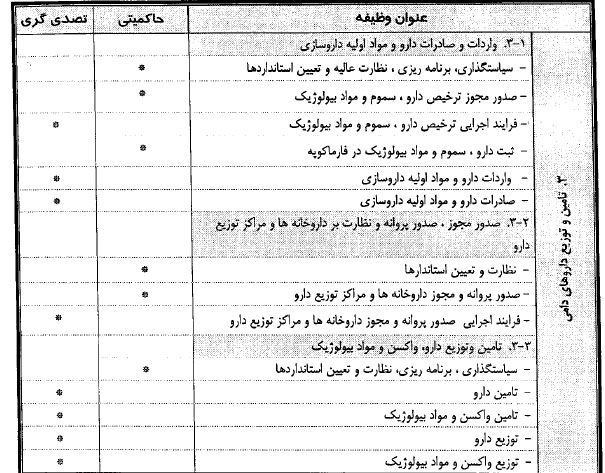 عنوان وظیفه حاکمیتی تصدی گری
۳. تامین و توزیع داروهای دامی
۳-۱. واردات و صادرات دارو و مواد اولیه داروسازی
- سیاستگذاری، برنامه ریزی ، نظارت عالیه و تعیین استانداردها *
- صدور مجوز ترخیص دارو ، سموم و مواد بیولوژیک *
- فرایند اجرایی ترخیص دارو ، سموم و مواد بیولوژیک *
- ثبت دارو ، سموم و مواد بیولوژیک در فارماکوپه *
- واردات دارو و مواد اولیه داروسازی *
- صادرات دارو و مواد اولیه داروسازی *
۳-۲. صدور مجوز ، صدور پروانه و نظارت بر داروخانه ها و مراکز توزیع
دارو
- نظارت و تعیین استاندارها *
- صدور پروانه و مجوز داروخانه ها و مراکز توزیع دارو *
- فرایند اجرایی صدور پروانه و مجوز داروخانه ها و مراکز توزیع دارو *
۳-۳. تامین وتوزیع دارو، واکسن و مواد بیولوژیک
- سیاستگذاری ، برنامه ریزی، نظارت و تعیین استانداردها *
- تامین دارو *
- تامین واکسن و مواد بیولوژیک *
- توزیع دارو *
- توزیع واکسن و مواد بیولوژیک *